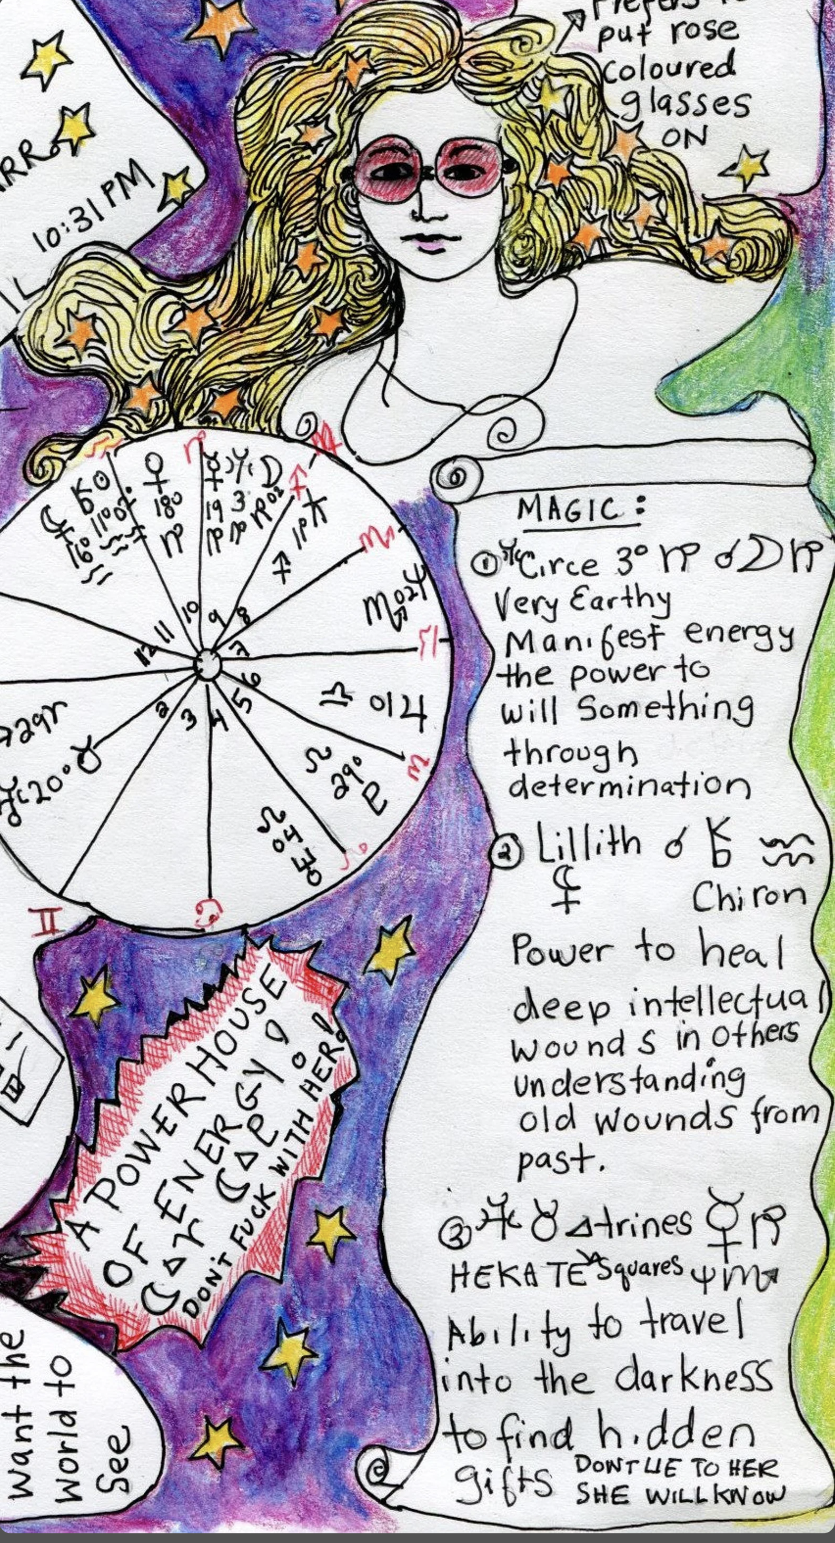 put rose
coloured
glasses
ON
10:31 PM
♀
180
♑
☿
19
♑
3
♑
☽
♑ 02
16°
♒
11°
♐
1°
♏ 02 ♆
♎ 0 ♃
♌
29°
♇
♌
29 ♈
20° ♉
12
11
10
9
8
7
6
5
4
3
2
♊
♋
MAGIC:
① Circe 3° ♑ ☌ ☽ ♑
Very Earthy
Manifest energy
the power to
will Something
through
determination
② Lillith ☌ ⚷ ♒
⚸
Chiron
Power to heal
deep intellectual
wounds in others
understanding
old wounds from
past.
③ ♉ △ trines ☿ ♑
HEKATE Squares ♆ ♏
Ability to travel
into the darkness
to find hidden
gifts
DONT LIE TO HER
SHE WILL KNOW
A POWERHOUSE
OF ENERGY!
☾ △ ♈ ☾ △ ♇
DON'T FUCK WITH HER!
Want the
World to
See